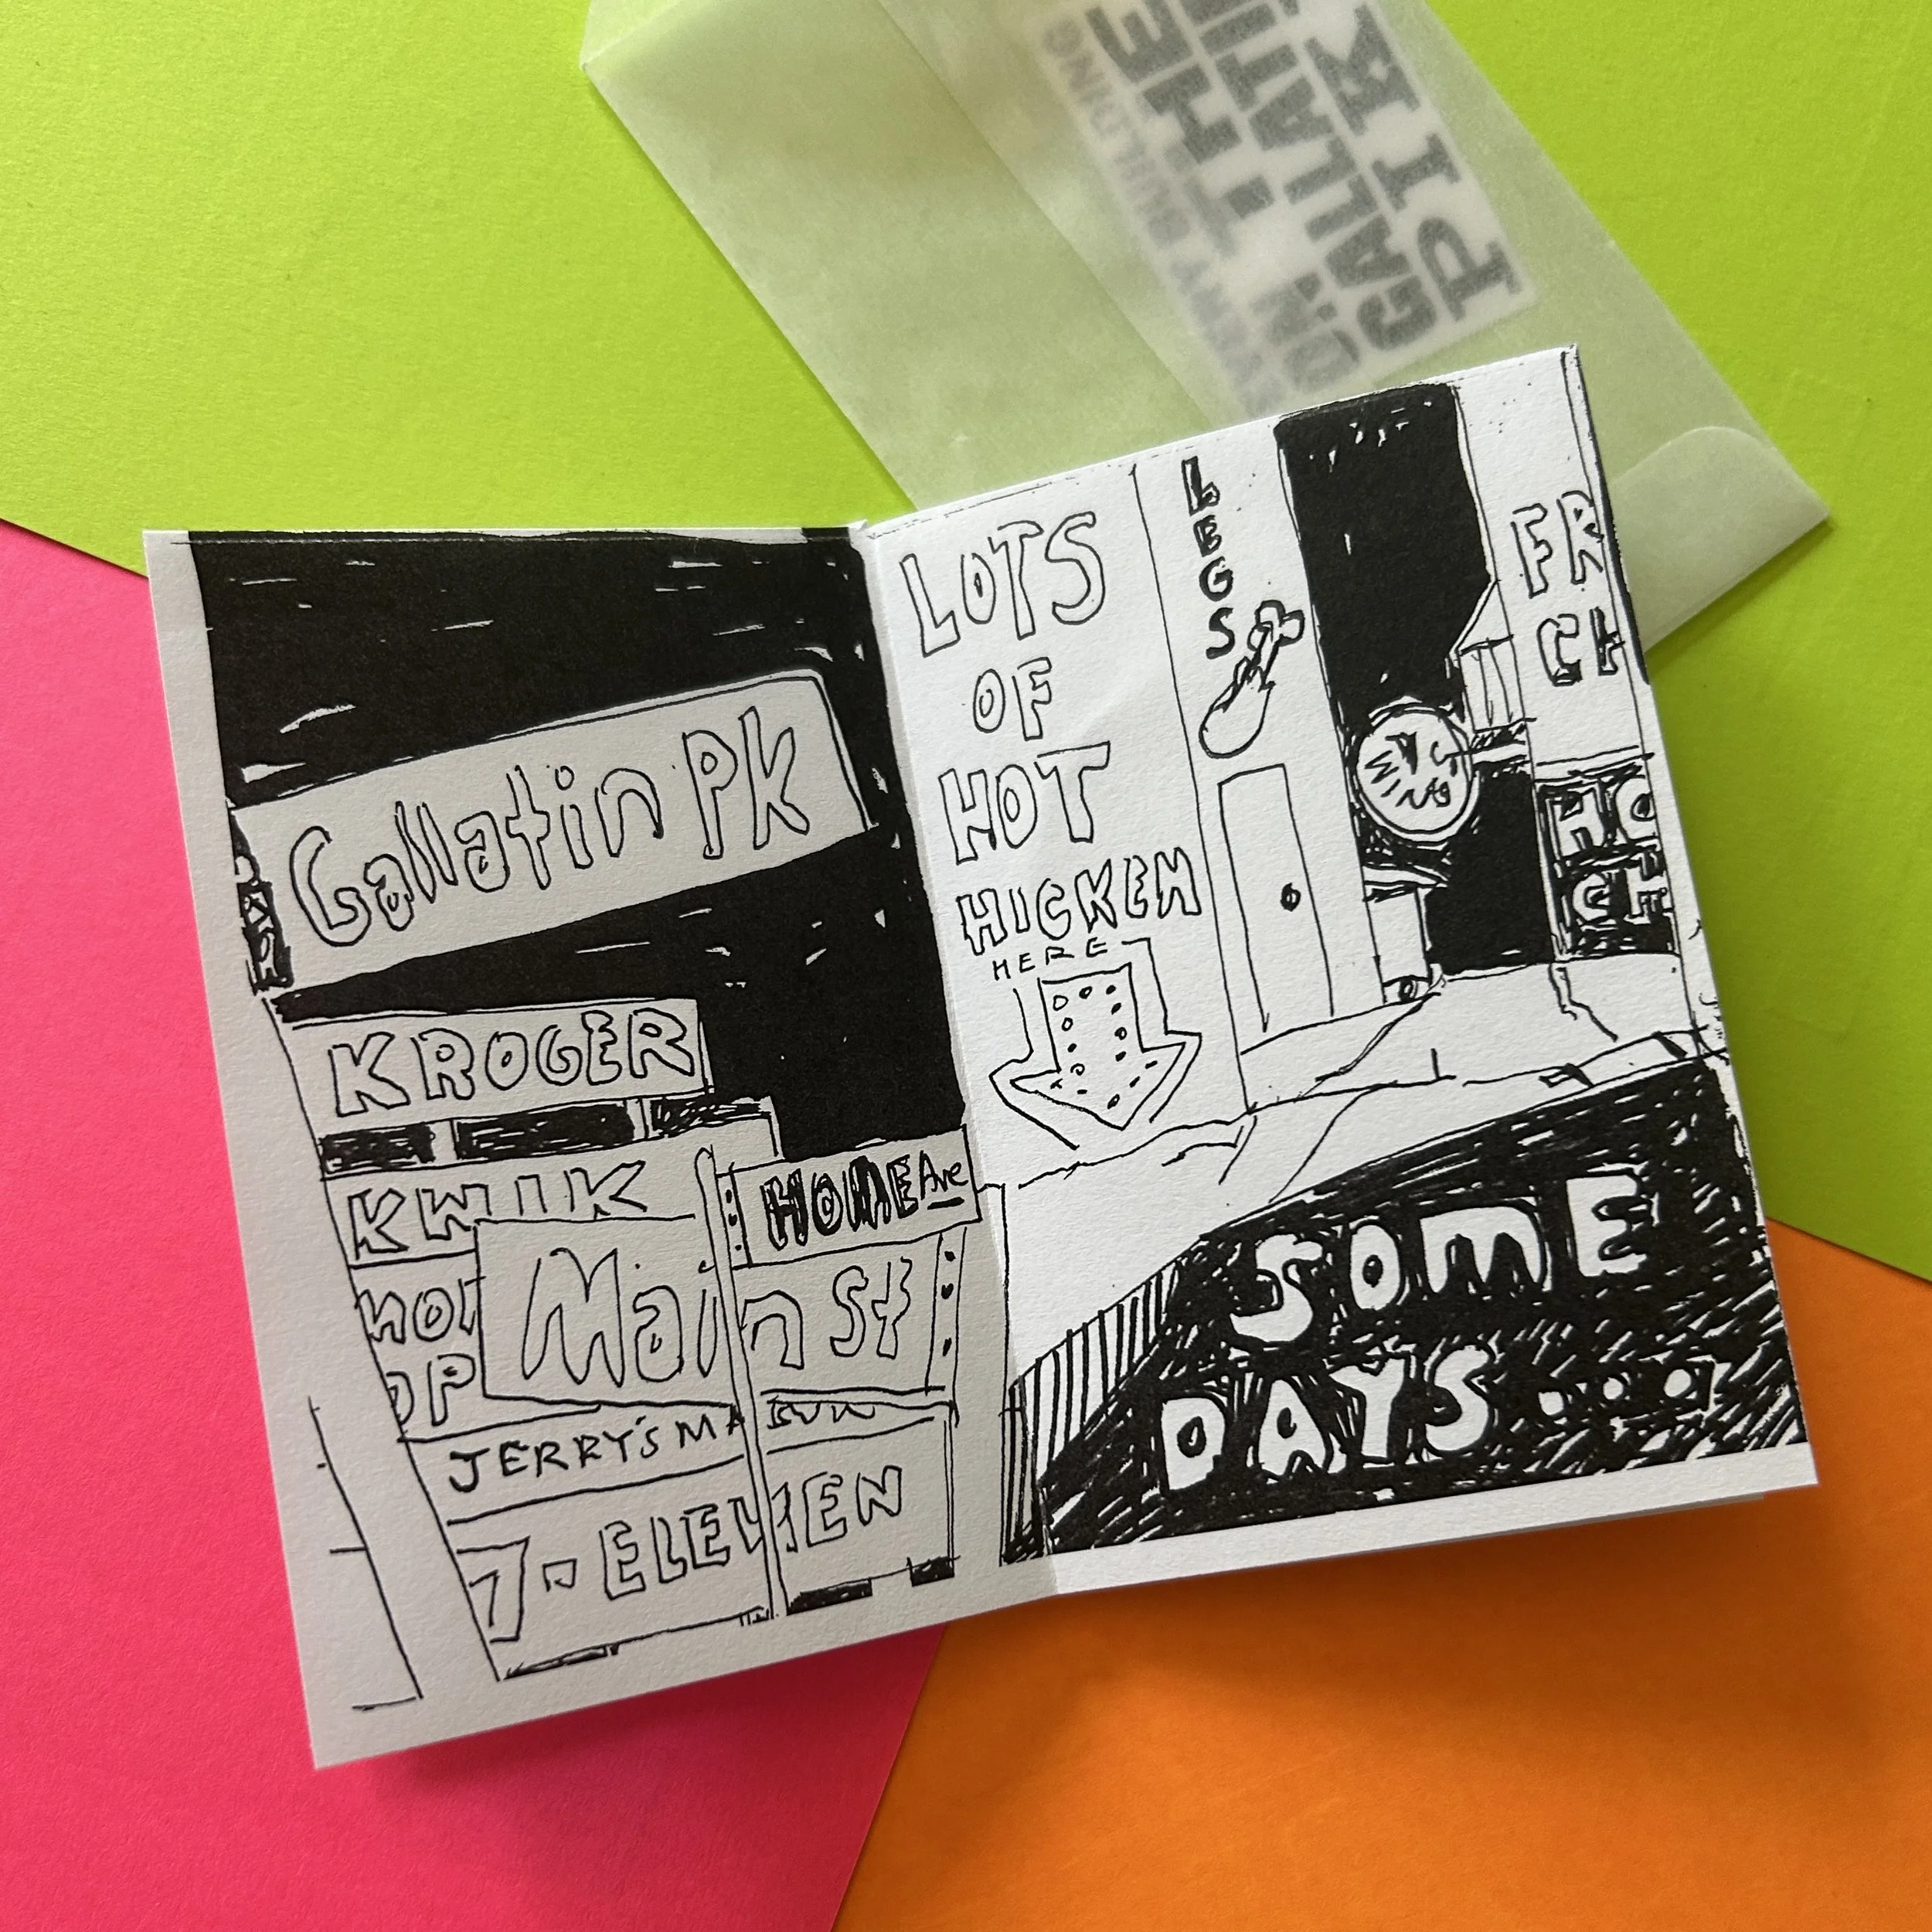 EVERY BUILDING
ON THE
GALLATIN
PIK
Gallatin Pk
KROGER
KWIK
HOME Ave
Main St
OP
JERRY'S MA
7-ELEVEN
LOTS
OF
HOT
HICKEN
HERE
LEGS
WINGS
FR
CH
HO
CH
SOME
DAYS...